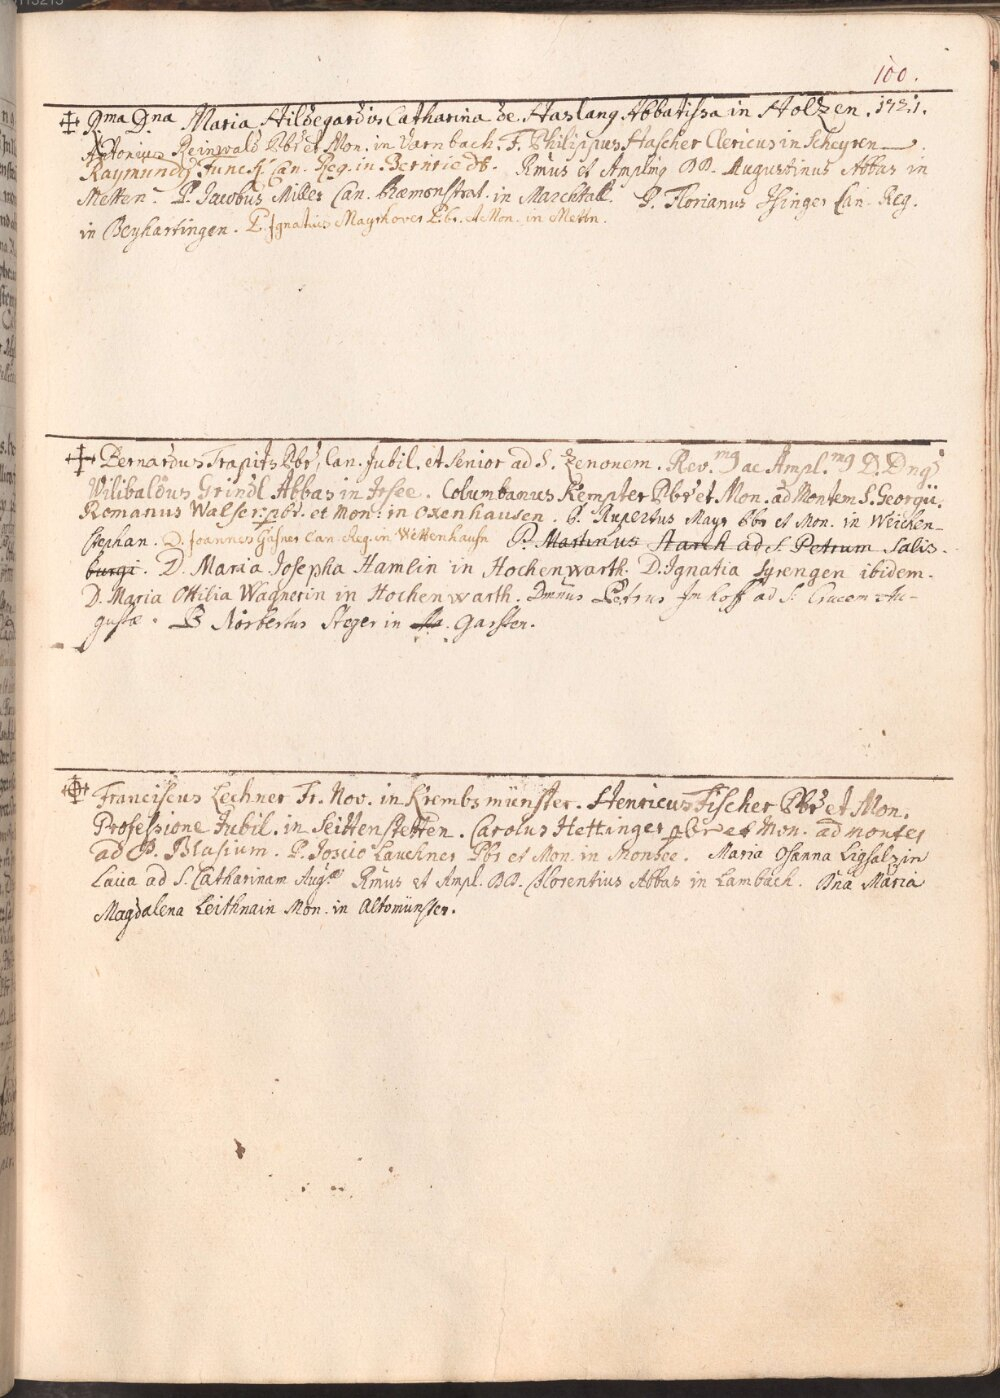 100.
R.ma D.na Maria Hildegardis Catharina de Haslang Abbatissa in Holzen. 1721.
Antonius Reinwald Pbr et Mon. in Varnbach. F. Philippus Hascher Clericus in Scheyren.
Raymundg Funckh Can. Reg. in Bernriedt. Rmus et Amplmg DD. Augustinus Abbas in
Metten. P. Jacobus Miller Can. Praemonstrat. in Marchtall. P. Florianus Isinger Can. Reg.
in Beyhartingen. P. Ignatius Mayrhover Pbr. et Mon. in Mettn.
Bernardus Trapits Pbr, Can. Jubil. et Senior ad S. Zenonem. Rev.mg ac Ampl.mg D. Dng
Wilibaldus Grindl Abbas in Irsee. Columbanus Kempter Pbr et Mon. ad Montem S. Georgii.
Romanus Walser pbr. et Mon: in Oxenhausen. P. Rupertus Mayr Pbr et Mon. in Weichen-
stephan. D. Joannes Gasner Can. Reg. in Wettenhausn P. Martinus Starch ad S. Petrum Salis-
burgi. D. Maria Josepha Hamlin in Hochenwarth. D. Ignatia Syrengen ibidem.
D. Maria Ottilia Wagnerin in Hochenwarth. Dminus Petrus Im hoff ad S. Crucem Au-
gustae. P Norbertus Steger in Garsten.
Franciscus Lechner Fr. Nov. in Krembsmünster. Henricus Fischer Pbr et Mon.
Professione Jubil. in Seittenstetten. Carolus Hettinger pbr et Mon. ad montes
ad S. Blasium. P. Joscio Lauchner Pbr et Mon. in Monsee. Maria Osanna Ligsalzin
Laica ad S. Catharinam Aug.ae Rmus et Ampl. DD. Florentius Abbas in Lambach. Dna Maria
Magdalena Leithnain Mon. in Altomünster.